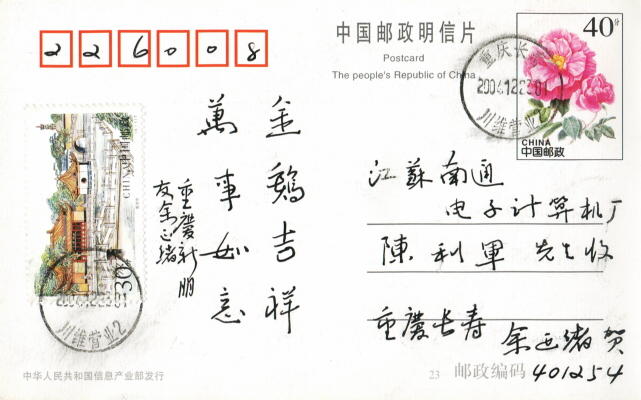 226008
中国邮政明信片
Postcard
The people's Republic of China
40分
CHINA
中国邮政
重庆长
2004.12.23.01
川维营业2
江蘇南通
电子计算机厂
陳利軍 先生收
重慶长寿
余正绪贺
邮政编码 401254
金鷄吉祥
萬事如意
重慶新朋
友余正绪
川维营业2
中华人民共和国信息产业部发行
23